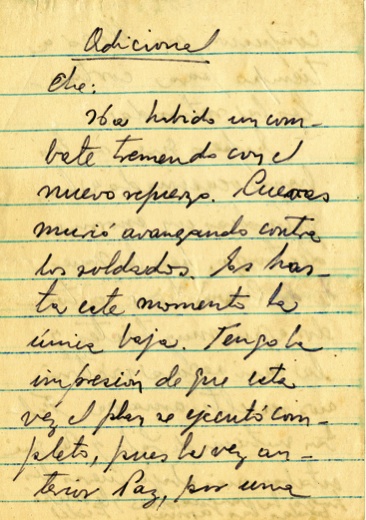 Adicional
Che:
Ha habido un com-
bate tremendo con el
nuevo refuerzo. Cuevas
murió avanzando contra
los soldados. Es has-
ta este momento la
única baja. Tengo la
impresión de que esta
vez el plan se ejecutó com-
pleto, pues la vez an-
terior Paz, por una